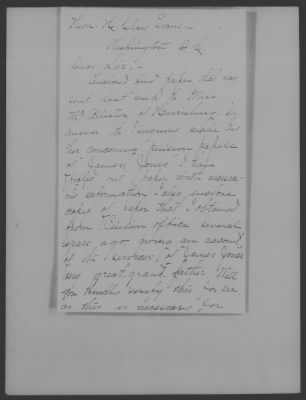 Hon H. Clay Evans -
Washington D.C.
Dear Sir:-
Enclosed find paper that was
sent last week to Miss
of Harrisburg in
answer to enquiries made by
her concerning Pension papers
of "James Jones" I have
out paper with
information I also enclose
copy of paper that I obtained
from Pension office several
years ago giving an account
of the Services of "James Jones"
my great grand father Will
you kindly verify this for me
as this is necessary for